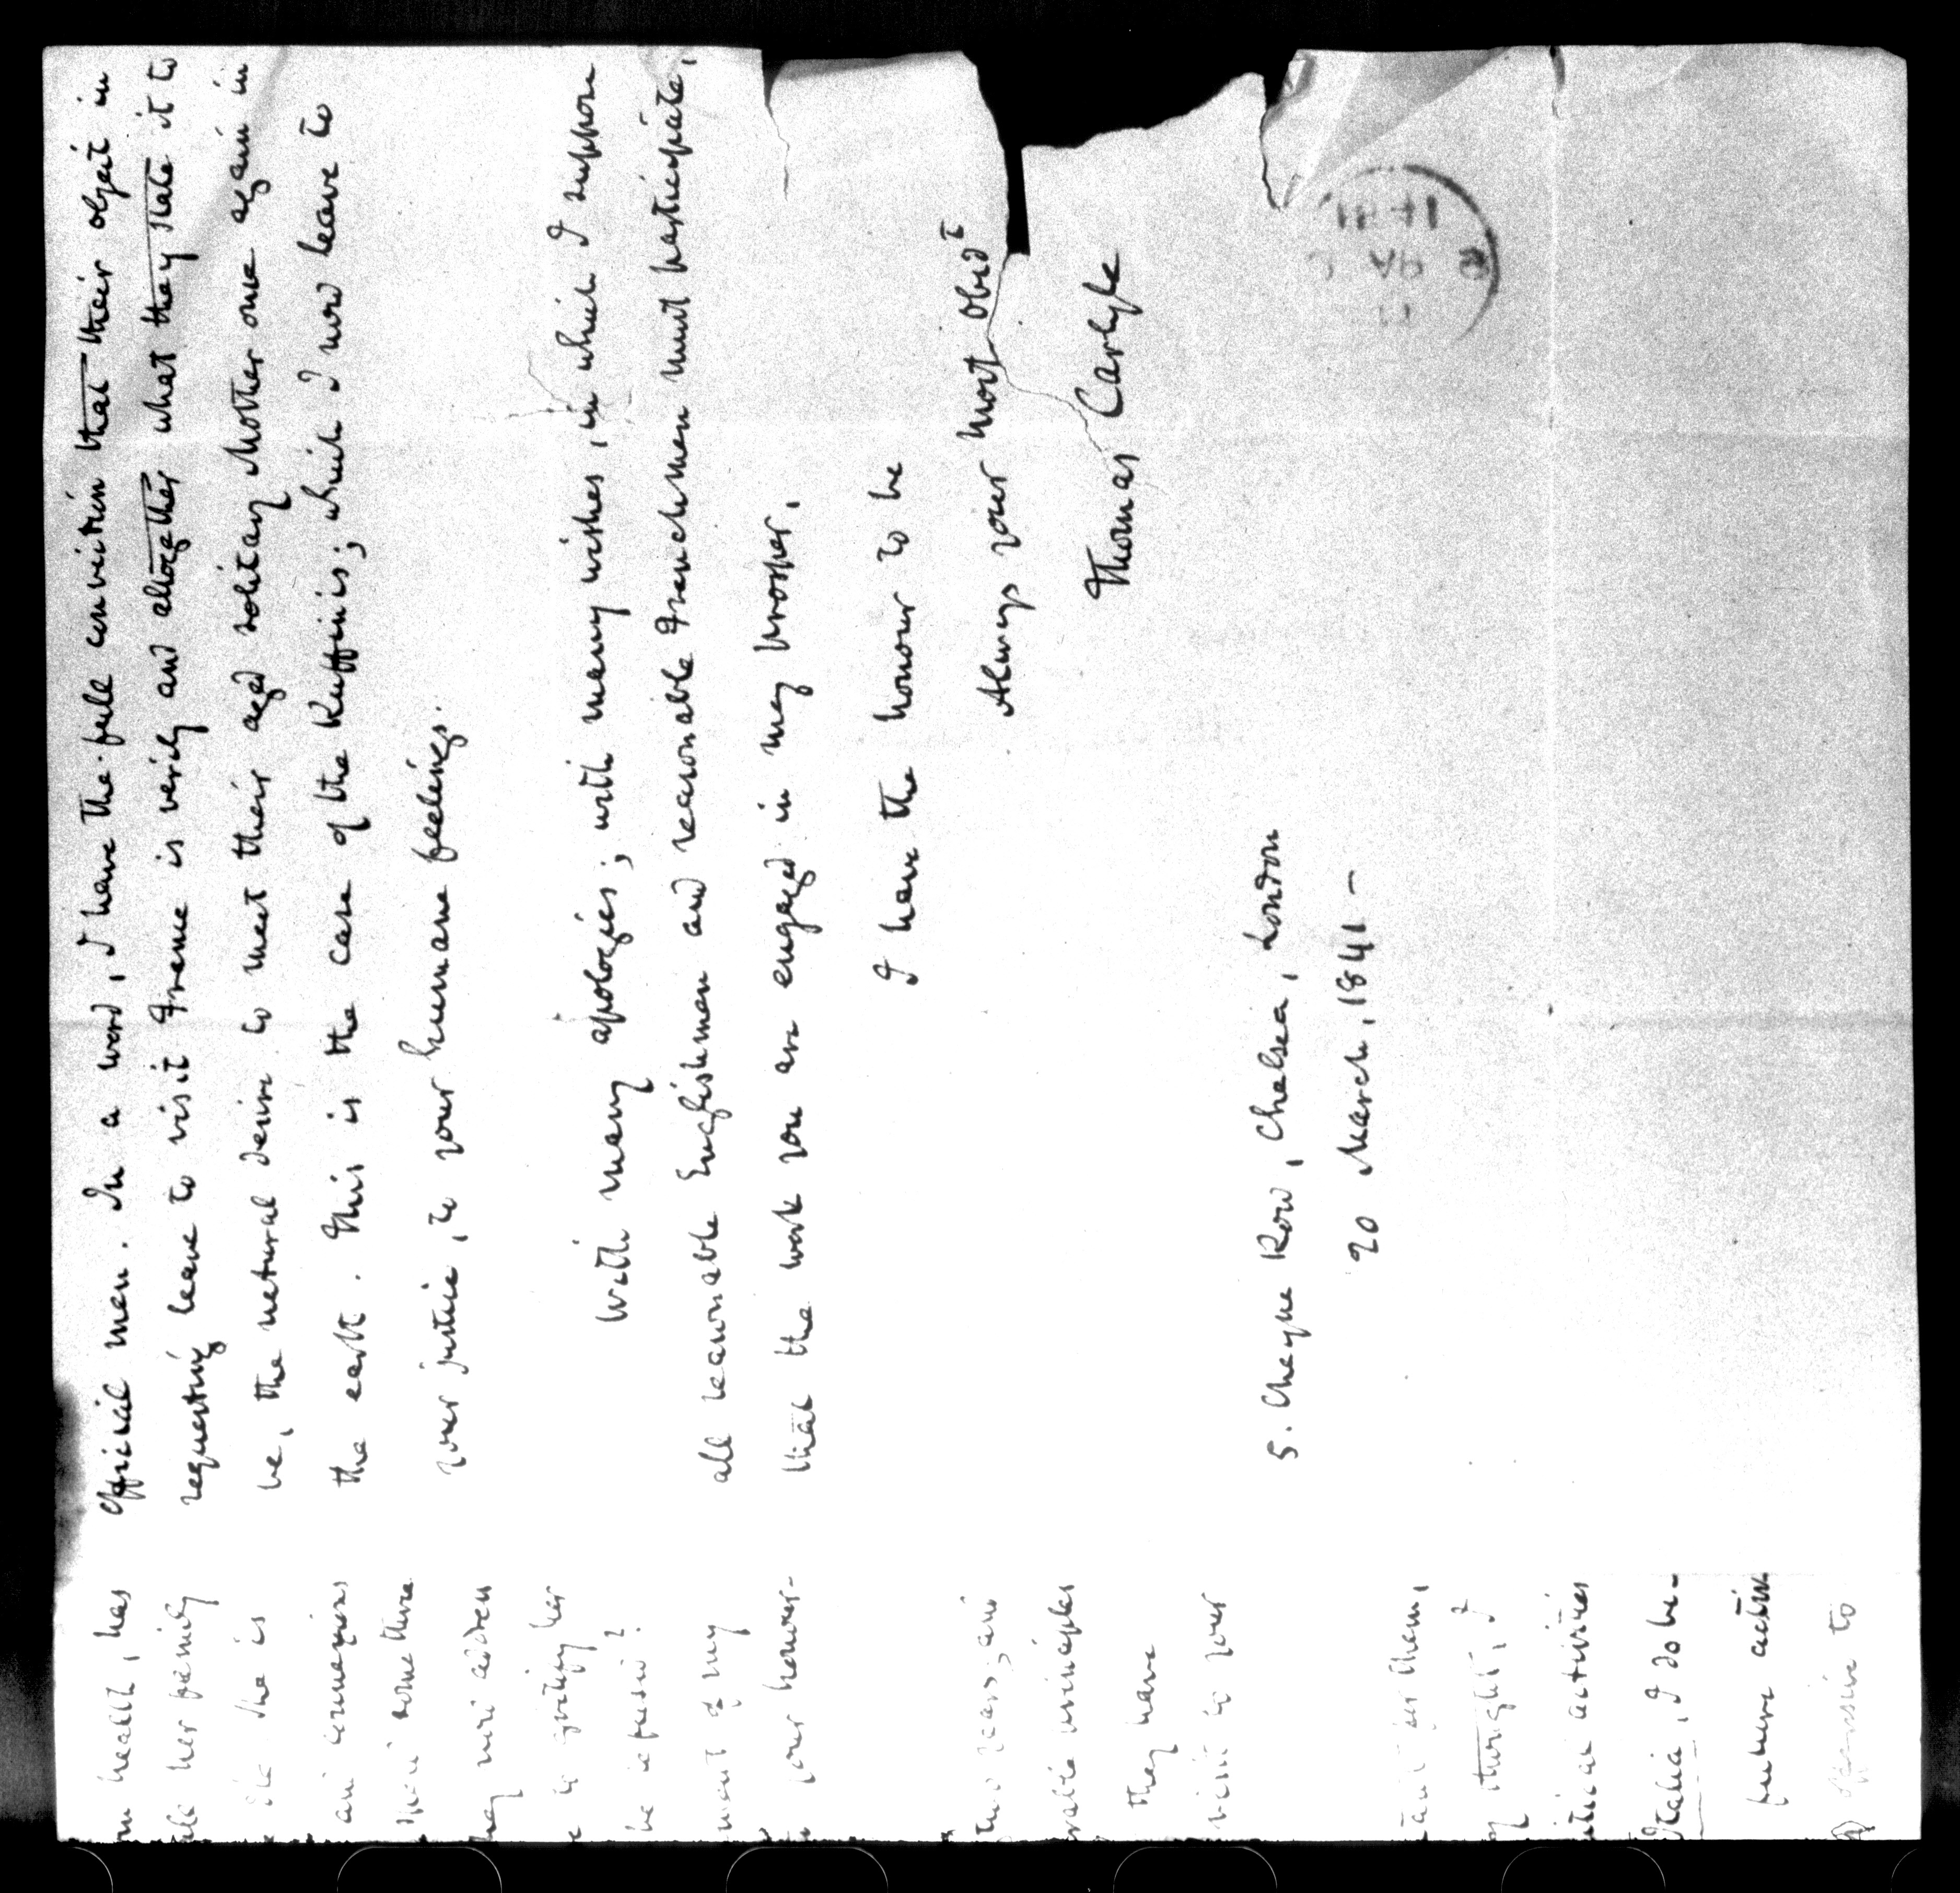 official men. In a word, I have the full conviction that their object in
requesting leave to visit France is verily and altogether what they state it to
be, the natural desire to meet their aged solitary Mother one again in
the earth. This is the case of the Ruffinis; which I now leave to
your justice, to your humane feelings.
With many apologies; with many wishes, in which I suppose
all reasonable Englishmen and reasonable Frenchmen must participate,
that the work you are engaged in may prosper,
I have the honour to be
Always your most obedt
Thomas Carlyle
5. Cheyne Row, Chelsea, London
20 March, 1841 —
health, has
her family
she is
and
some three
may
her
be refused?
of my
your honour-
years; and
principles
they have
to your
for them,
of thought, I
activities
Italia, I do be-
future
to